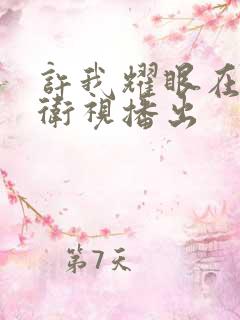 許我耀眼在
衛視播出
第7天